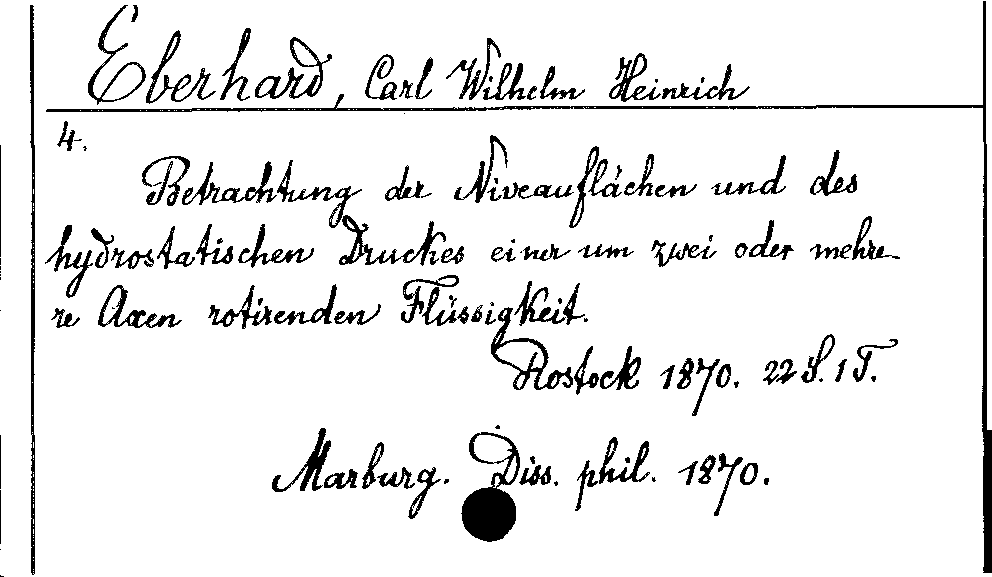 Eberhard, Carl Wilhelm Heinrich
4.
Betrachtung der Niveauflächen und des
hydrostatischen Druckes einer um zwei oder mehre-
re Axen rotirenden Flüssigkeit.
Rostock 1870. 22 S. 1 T.
Marburg. Diss. phil. 1870.